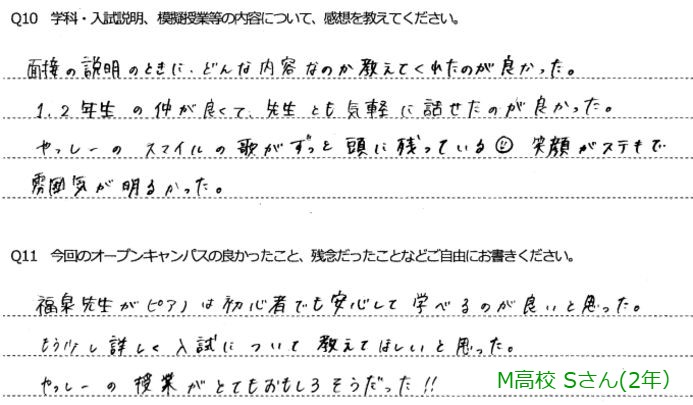 Q10　学科・入試説明、模擬授業等の内容について、感想を教えてください。
面接の説明のときに、どんな内容なのか教えてくれたのが良かった。
1、2年生の仲が良くて、先生とも気軽に話せたのが良かった。
やっしーのスマイルの歌がずっと頭に残っている☺ 笑顔がステキで
雰囲気が明るかった。
Q11　今回のオープンキャンパスの良かったこと、残念だったことなどご自由にお書きください。
福泉先生がピアノは初心者でも安心して学べるのが良いと思った。
もう少し詳しく入試について教えてほしいと思った。
やっしーの授業がとてもおもしろそうだった!!
M高校 Sさん(2年）